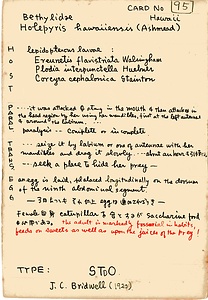 CARD No 95
Bethylidae Hawaii
Holepyris hawaiiensis (Ashmead)
HOST
lepidopterous larvae :
Ereunetis flavistriata Walsingham
Plodia interpunctella Haebn
Corcyra cephalonica Stainton
PARAL
---- it was attacked & stung in the mouth & then attacks in
the head region by her using her mandibles, first at the left antenna
& around the
paralysis -- complete or incomplete
TRANS
---- seize it by labium or one of antennae with her
mandibles and drag it slowly.
---- seek a place to hide her prey —
EGG
an egg is laid, placed longitudinally on the dorsum
of the ninth abdominal segment.
Female caterpillar Saccharine food
the adult is markedly fossorial in habits,
feeds on sweets as well as upon the juices of the prey!
TYPE: STO
J. C. Bridwell (1920)